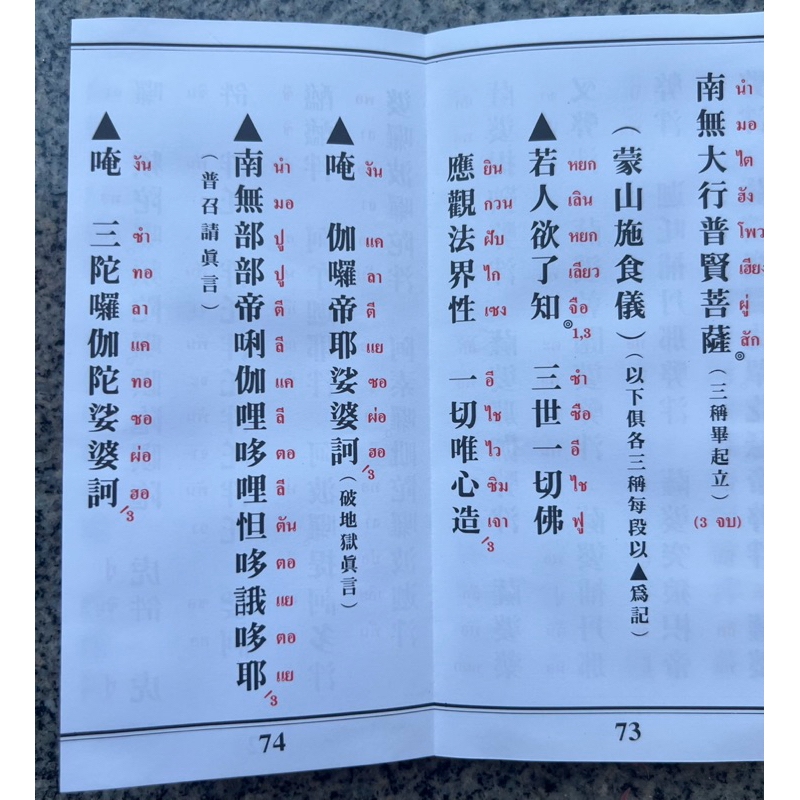 南無大行普賢菩薩◎(三稱畢起立)
นำ มอ ไต ฮัง โพว เฮียง ผู่ สัก (3 จบ)
(蒙山施食儀)(以下俱各三稱每段以▲爲記)
▲若人欲了知◎ 三世一切佛
หยก เลิน หยก เลียว จือ 1,3 ซำ ซือ อี ไช ฟู
應觀法界性 一切唯心造
ยิน กวน ฝับ ไก เซง อี ไช ไว ซิม เจา 3
73
▲唵 伽囉帝耶娑婆訶(破地獄眞言)
งัน แค ลา ตี แย ซอ ผ่อ ฮอ 3
▲南無部部帝唎伽哩哆哩怛哆誐哆耶
นำ มอ ปู ปู ตี ลี แค ลี ตอ ลี ตัน ตอ แย ตอ แย 3
普召請眞言)
▲唵 三陀囉伽陀娑婆訶
งัน ซำ ทอ ลา แค ทอ ซอ ผ่อ ฮอ 3
74